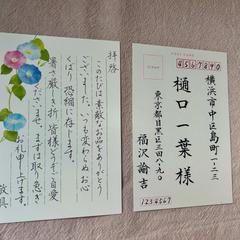 拝啓
このたびは素敵なお品をありがとう
ございました。いつも変わらぬお心
くばり恐縮に存じます。
暑さ厳しき折 皆様どうぞご自愛
くださいませ。まずは取り急ぎ
お礼申し上げます。
敬具
POST CARD
4567890
横浜市中区島町一・二三
樋口一葉様
東京都目黒区三四八・九〇
福沢諭吉
1234567